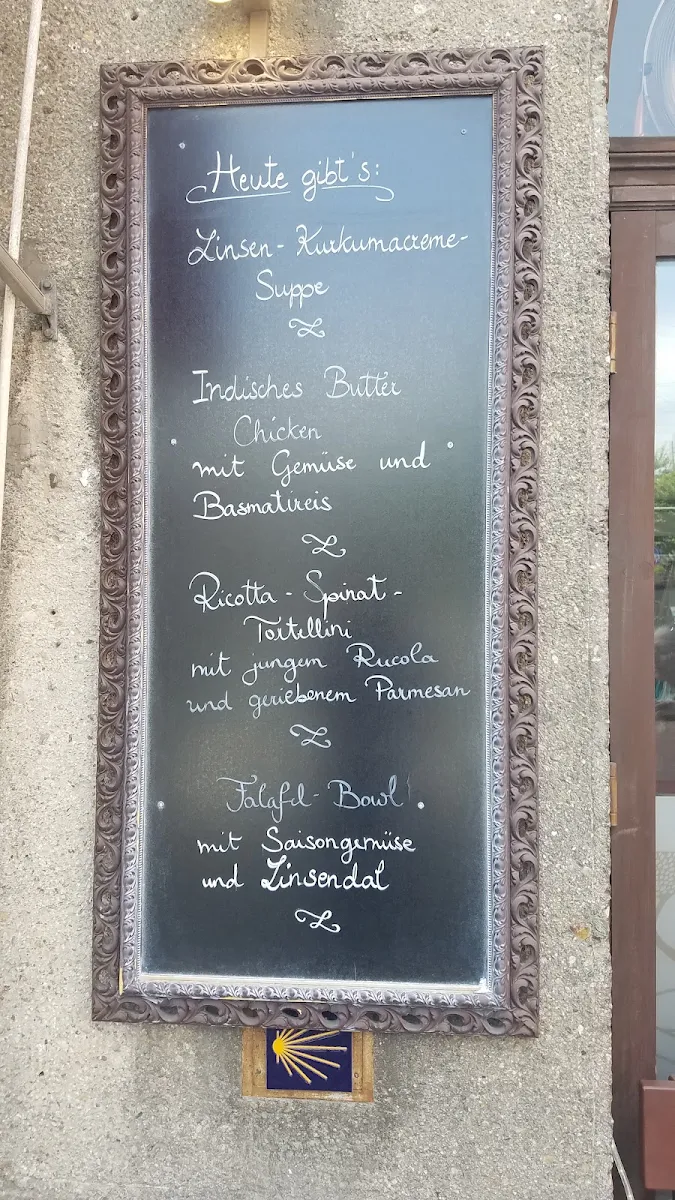 Heute gibt's:
Linsen-Kurkumacreme-
Suppe
Indisches Butter
Chicken
mit Gemüse und
Basmatireis
Ricotta-Spinat-
Tortellini
mit jungem Rucola
und geriebenem Parmesan
Falafel-Bowl
mit Saisongemüse
und Linsendal